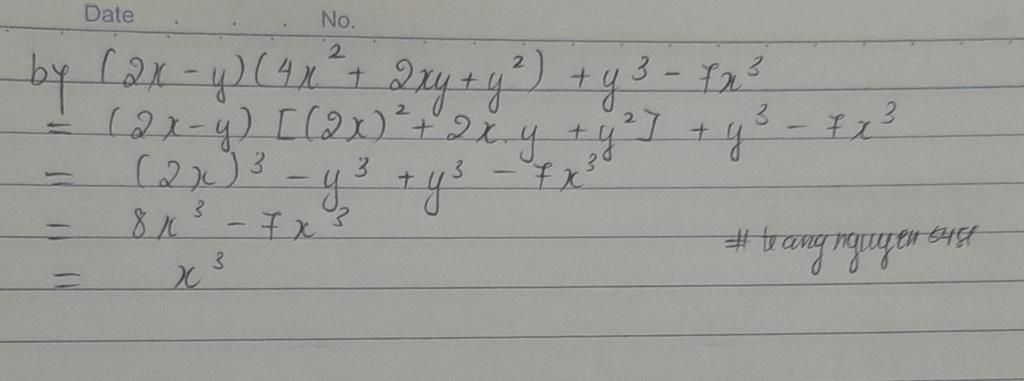 Date . . . No.
by (2x - y)(4x² + 2xy + y²) + y³ - 7x³
= (2x - y) [(2x)² + 2x.y + y²] + y³ - 7x³
= (2x)³ - y³ + y³ - 7x³
= 8x³ - 7x³
= x³